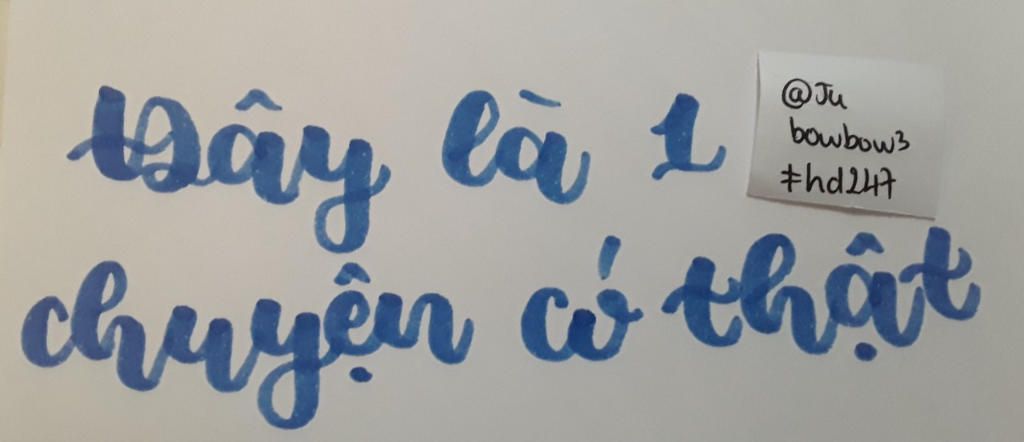 Đây là 1
@Ju
bowbow3
#hd247
chuyện có thật